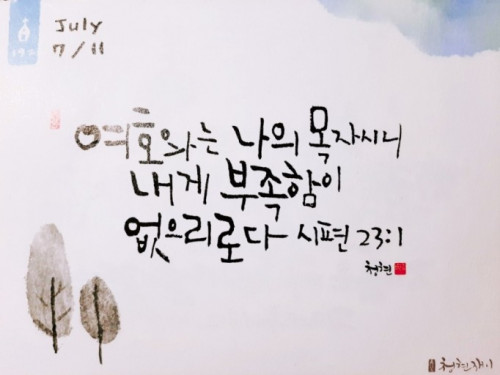 July
7/11
여호와는 나의 목자시니
내게 부족함이
없으리로다 시편 23:1
청현
청현재이